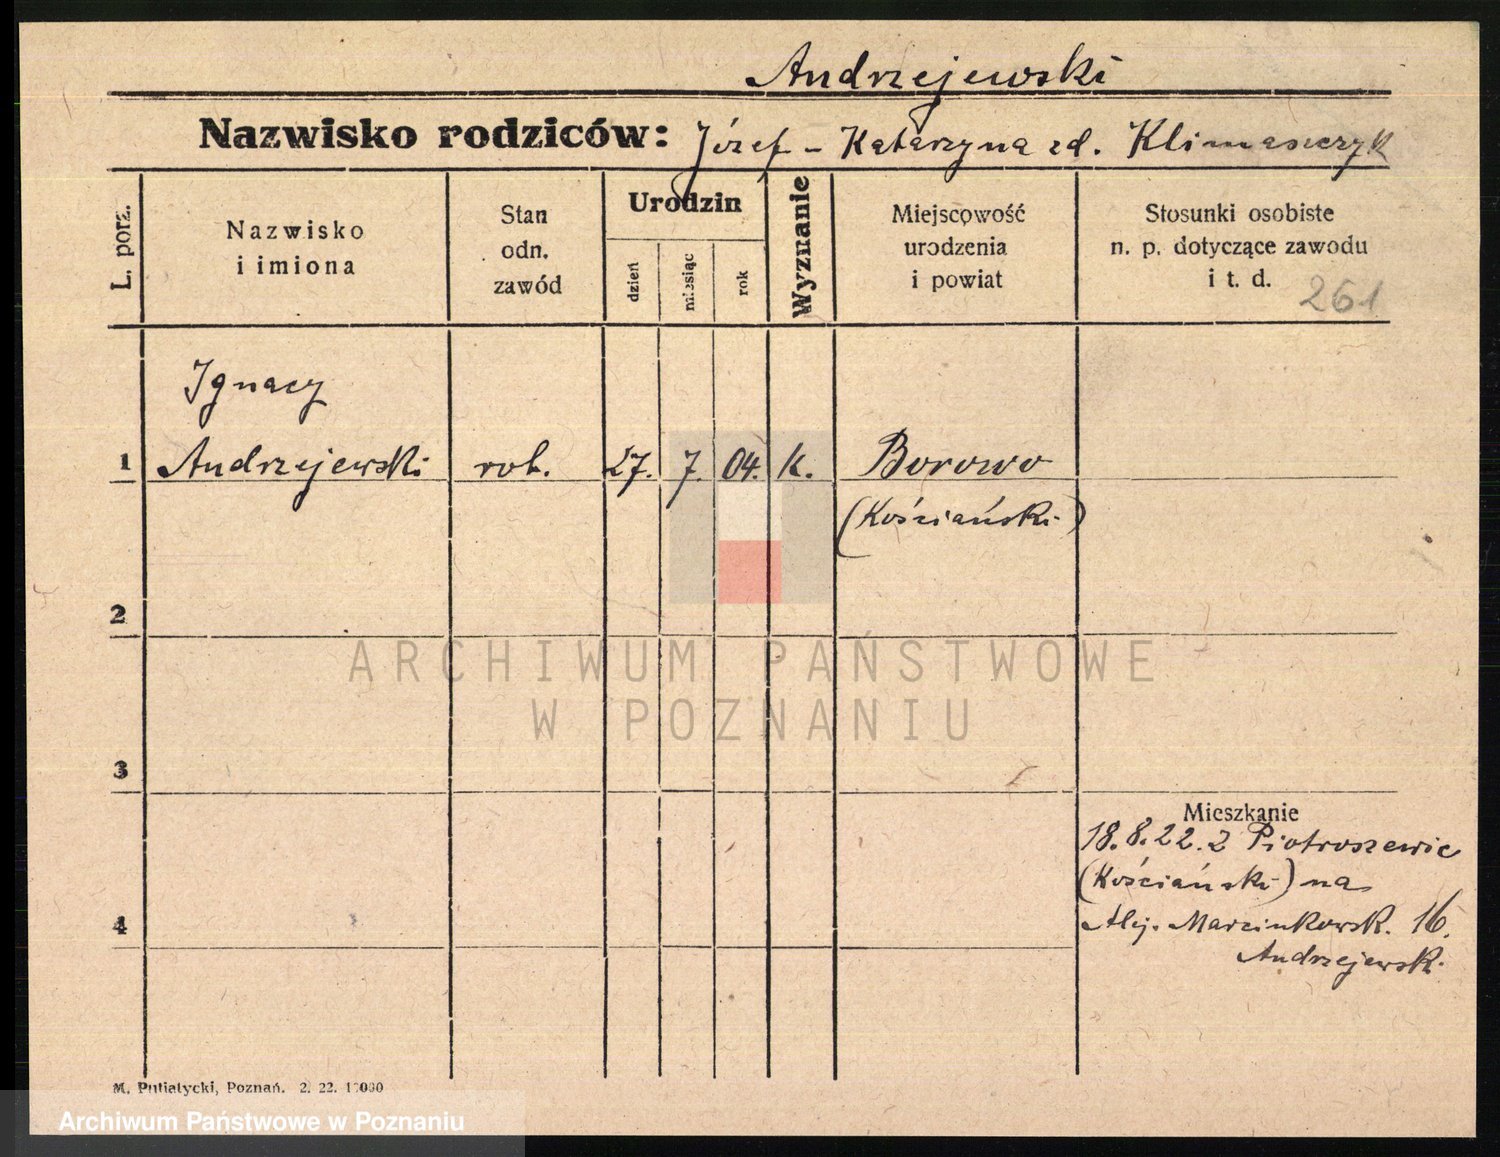 Andrzejewski
Nazwisko rodziców: Józef - Katarzyna zd. Klimaszczyk
L. porz.
Nazwisko
i imiona
Stan
odn.
zawód
Urodzin
dzień
miesiąc
rok
Wyznanie
Miejscowość
urodzenia
i powiat
Stosunki osobiste
n. p. dotyczące zawodu
i t. d.
261
Ignacy
1 Andrzejewski rob. 27. 7. 04. k. Borowo
(Kościański)
2
ARCHIWUM PAŃSTWOWE
W POZNANIU
3
Mieszkanie
18.8.22. z Piotroszewic
(Kościański) na
4
Alej. Marcinkowsk. 16.
Andrzejewski
M. Putiatycki, Poznań. 2. 22.
Archiwum Państwowe w Poznaniu